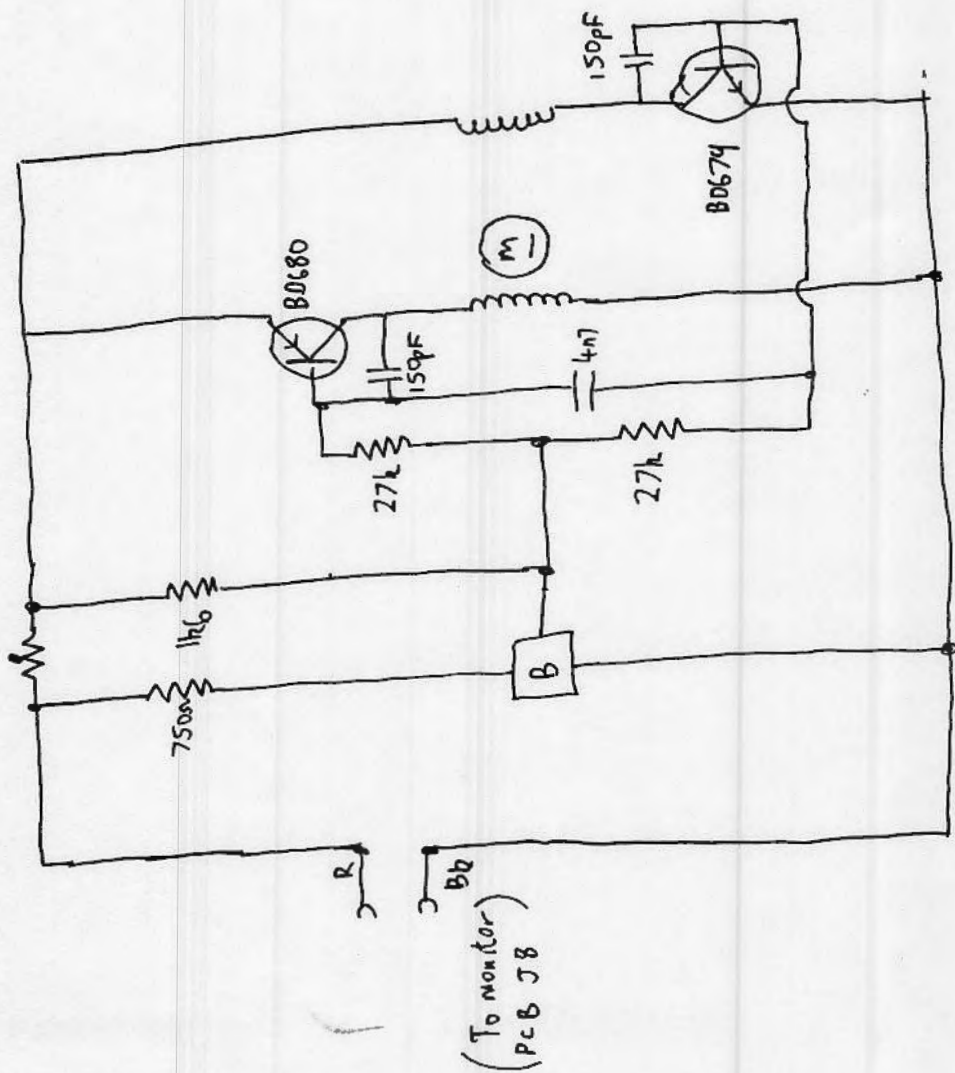 150pF
BD679
BD680
M
150pF
4n7
27k
27k
1k6
750Ω
B
R
Bk
(To monitor)
PCB J8